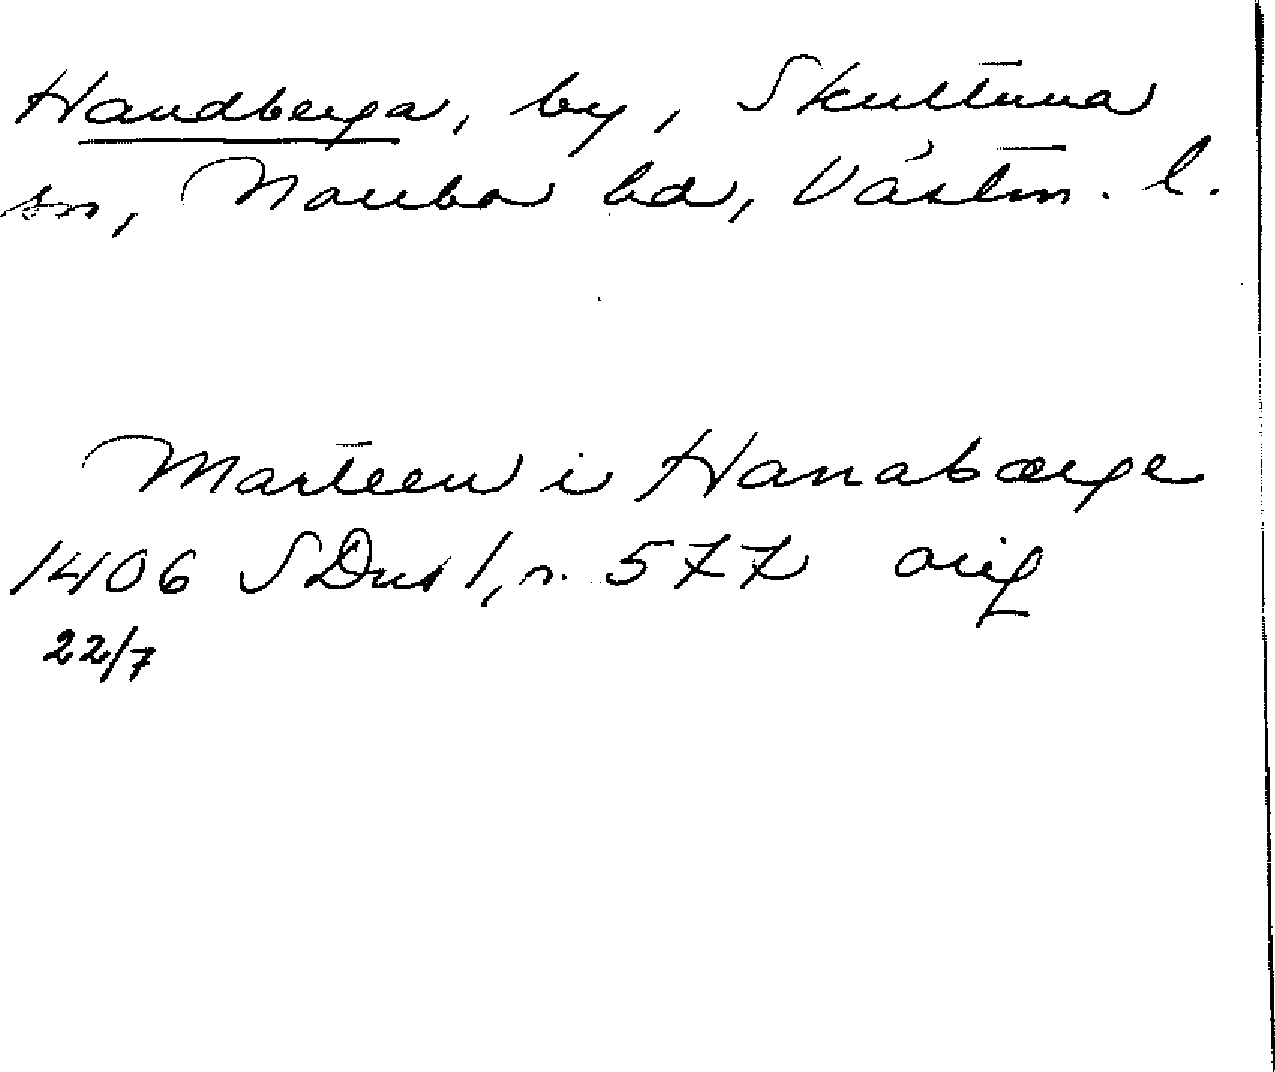 Handberga, by, Skultuna
sn, Norrbo hd, Västm. l.
Marteen i Hanabærge
1406 SDns 1, n. 577 orig
22/7